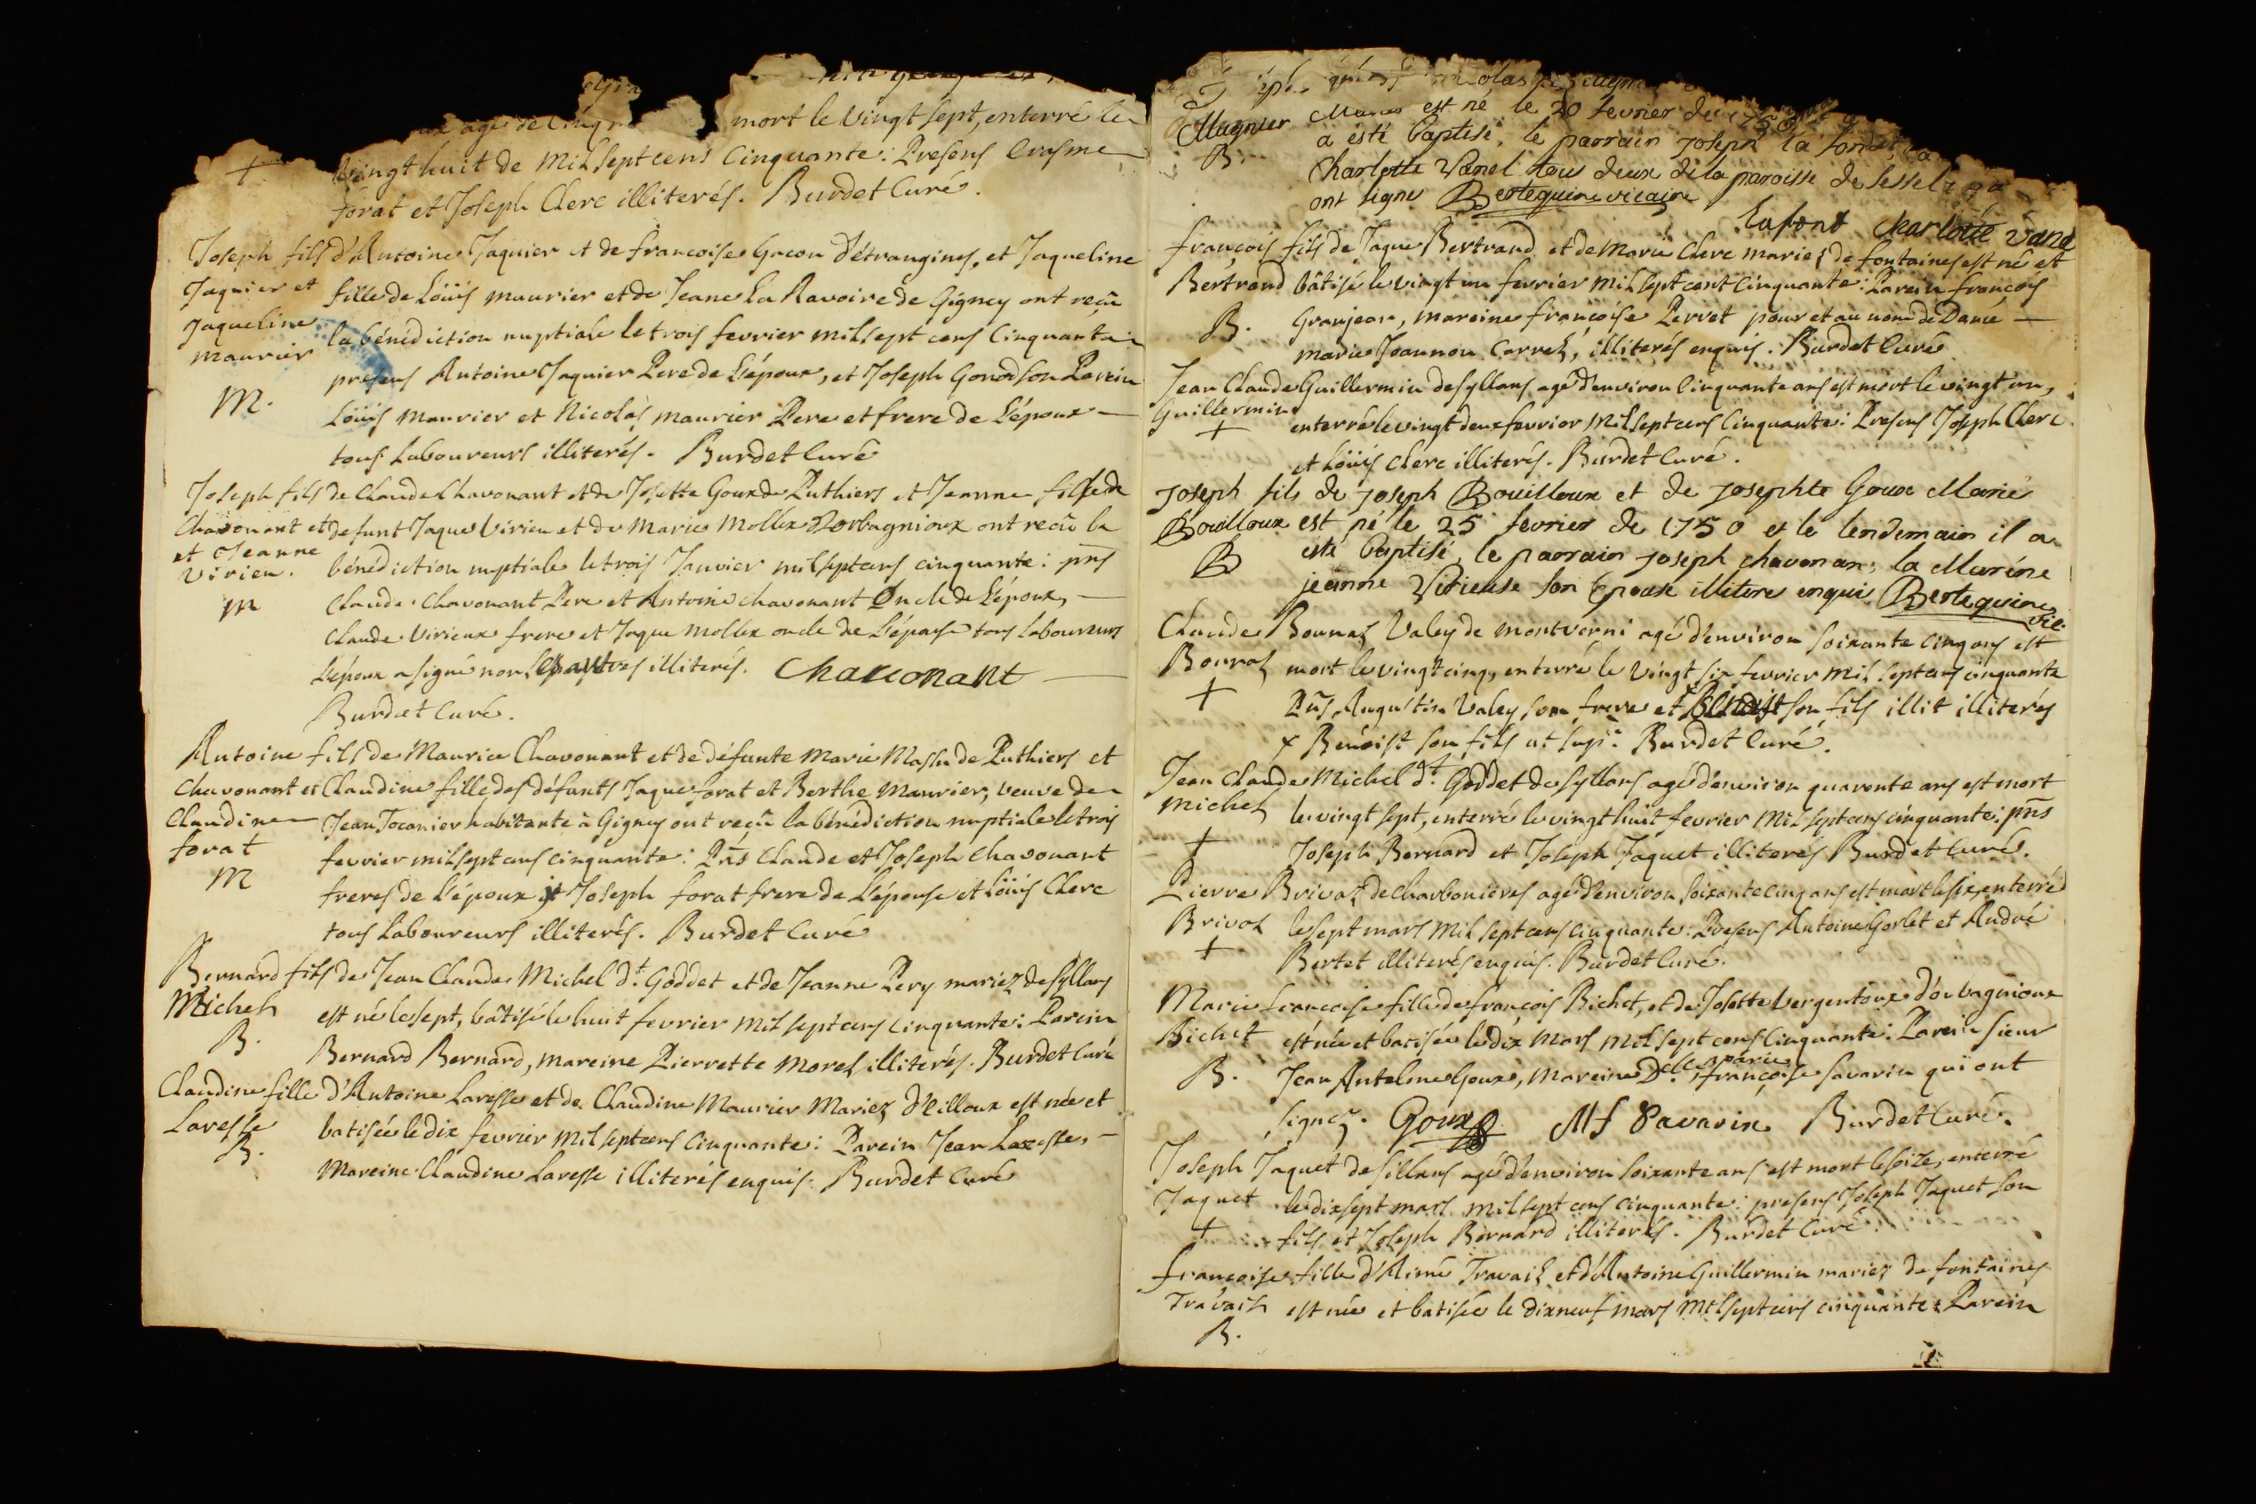 agé de Cinq mort le vingt sept, enterré le
+ vingt huit de Mil sept cens Cinquante : Presens Erasme
forat et Joseph Clerc illiterés. Burdet Curé.
Joseph fils d'Antoine Jaquier et de francoise Gacon d'étrangines, et Jaqueline
Jaquier et fille de Loüis maurier et de Jeane La Ravoire de Gigney ont reçû
Jaqueline la bénédiction nuptiale le trois fevrier mil sept cens Cinquante
maurier presens Antoine Jaquier Pere de L'époux, et Joseph Gonod son Parein
M. Loüis maurier et Nicolas maurier Pere et frere de L'épouse
tous Laboureurs illiterés. Burdet Curé
Joseph fils de Claude Chavonant et de Josette Goux de Puthiers et Jeanne fille de
Chavonant et defunt Jaque Virieu et de Marie Mollex d'orbagnioux ont recû la
et Jeanne
Virieu. bénédiction nuptiale le trois Janvier mil sept cens cinquante : pns
M Claude Chavonant Pere et Antoine Chavonant Oncle de L'époux,
Claude Virieux frere et Jaque Mollex oncle de L'épouse tous Laboureurs
L'époux a signé non les autres illiterés. Chavonant
Burdet Curé.
Antoine fils de Maurice Chavonant et de défunte Marie Massu de Puthiers et
Chavonant et Claudine fille des défunts Jaque forat et Berthe Maurier, veuve de
Claudine Jean Tocanier habitante à Gigney ont reçû la bénédiction nuptiale le trois
forat fevrier mil sept cens cinquante : Pns Claude et Joseph Chavonant
M freres de L'époux et Joseph forat frere de L'épouse et Loüis Clerc
tous Laboureurs illiterés. Burdet Curé
Bernard fils de Jean Claude Michel dt. Goddet et de Jeanne Pery mariez de Syllans
Michel est né le sept, bâtisé le huit fevrier Mil sept cens Cinquante : Parein
B. Bernard Bernard, mareine Pierrette Morel illiterés. Burdet Curé
Claudine fille d'Antoine Laresse et de Claudine Maurier Mariez d'Eilloux est née et
Laresse batisée le dix fevrier Mil sept cens Cinquante : Parein Jean Laresse,
B. Mareine Claudine Laresse illiterés enquis. Burdet Curé
Mugnier est né le 20 fevrier de 1750
B. a esté baptisé, le parrain joseph la font,
Charlotte Vanel tous deux de la paroisse de sessel
ont signe Bertequine vicaire
Lafont Charlotte Vanel
françois fils de Jaque Bertrand et de Marie Clerc mariez de fontaines est né et
Bertrand bâtisé le vingt un fevrier mil sept cent Cinquante : Parein françois
B. Granjean, mareine françoise Pervet pour et au nom de Dame
marie Jeannon Carrel, illiterés enquis. Burdet Curé
Jean Claude Guillermin de Syllans agé d'environ Cinquante ans est mort le vingt un,
Guillermin enterré le vingt deux fevrier Mil sept cens Cinquante : Presens Joseph Clerc
+ et Loüis Clerc illiterés. Burdet Curé.
joseph fils de joseph Bouilloux et de josephte Goux Marié
Bouilloux est né le 25 fevrier de 1750 et le lendemain il a
B esté baptisé, le parrain joseph chavonan, la Marène
jeanne Virieuse son Epouse illitere enqui Bertequine
vic.
Claude Bonnaz Valey de montverni agé d'environ Soixante cinq ans est
Bonnaz mort le vingt cinq, enterré le vingt six fevrier Mil sept cens cinquante
+ Pns Augustin Valey son frere et son fils illit illiterés
x Benoist son fils ut supra Burdet Curé.
Jean Claude Michel dt. Goddet de Syllans agé d'environ quarente ans est mort
Michel le vingt sept, enterré le vingt huit fevrier Mil sept cens cinquante : pns
+ Joseph Bernard et Joseph Jaquet illiterés Burdet Curé.
Pierre Brivaz de Charbonieres agé d'environ Soixante cinq ans est mort le six, enterré
Brivaz le sept mars Mil sept cens cinquante : Presens Antoine Gorlet et André
+ Bertet illiterés enquis. Burdet Curé.
Marie francoise fille de françois Richet, et de Josette Vergentoux d'orbagnioux
Richet est née et batisée le dix Mars Mil sept cens Cinquante : Parein sieur
B. Jean Antelme Goux, Mareine Delle marie françoise Savarin qui ont
signez. Goux Mf Savarin Burdet Curé.
Joseph Jaquet de Sillans agé d'environ Soixante ans est mort le seize, enterré
Jaquet le dix sept mars Mil sept cens cinquante : presens Joseph Jaquet son
+ fils et Joseph Bernard illiterés. Burdet Curé.
francoise fille d'Aimé Travail et d'Antoine Guillermin mariez de fontaines
Travail est née et batisée le dix neuf mars Mil sept cens cinquante : Parein
B.